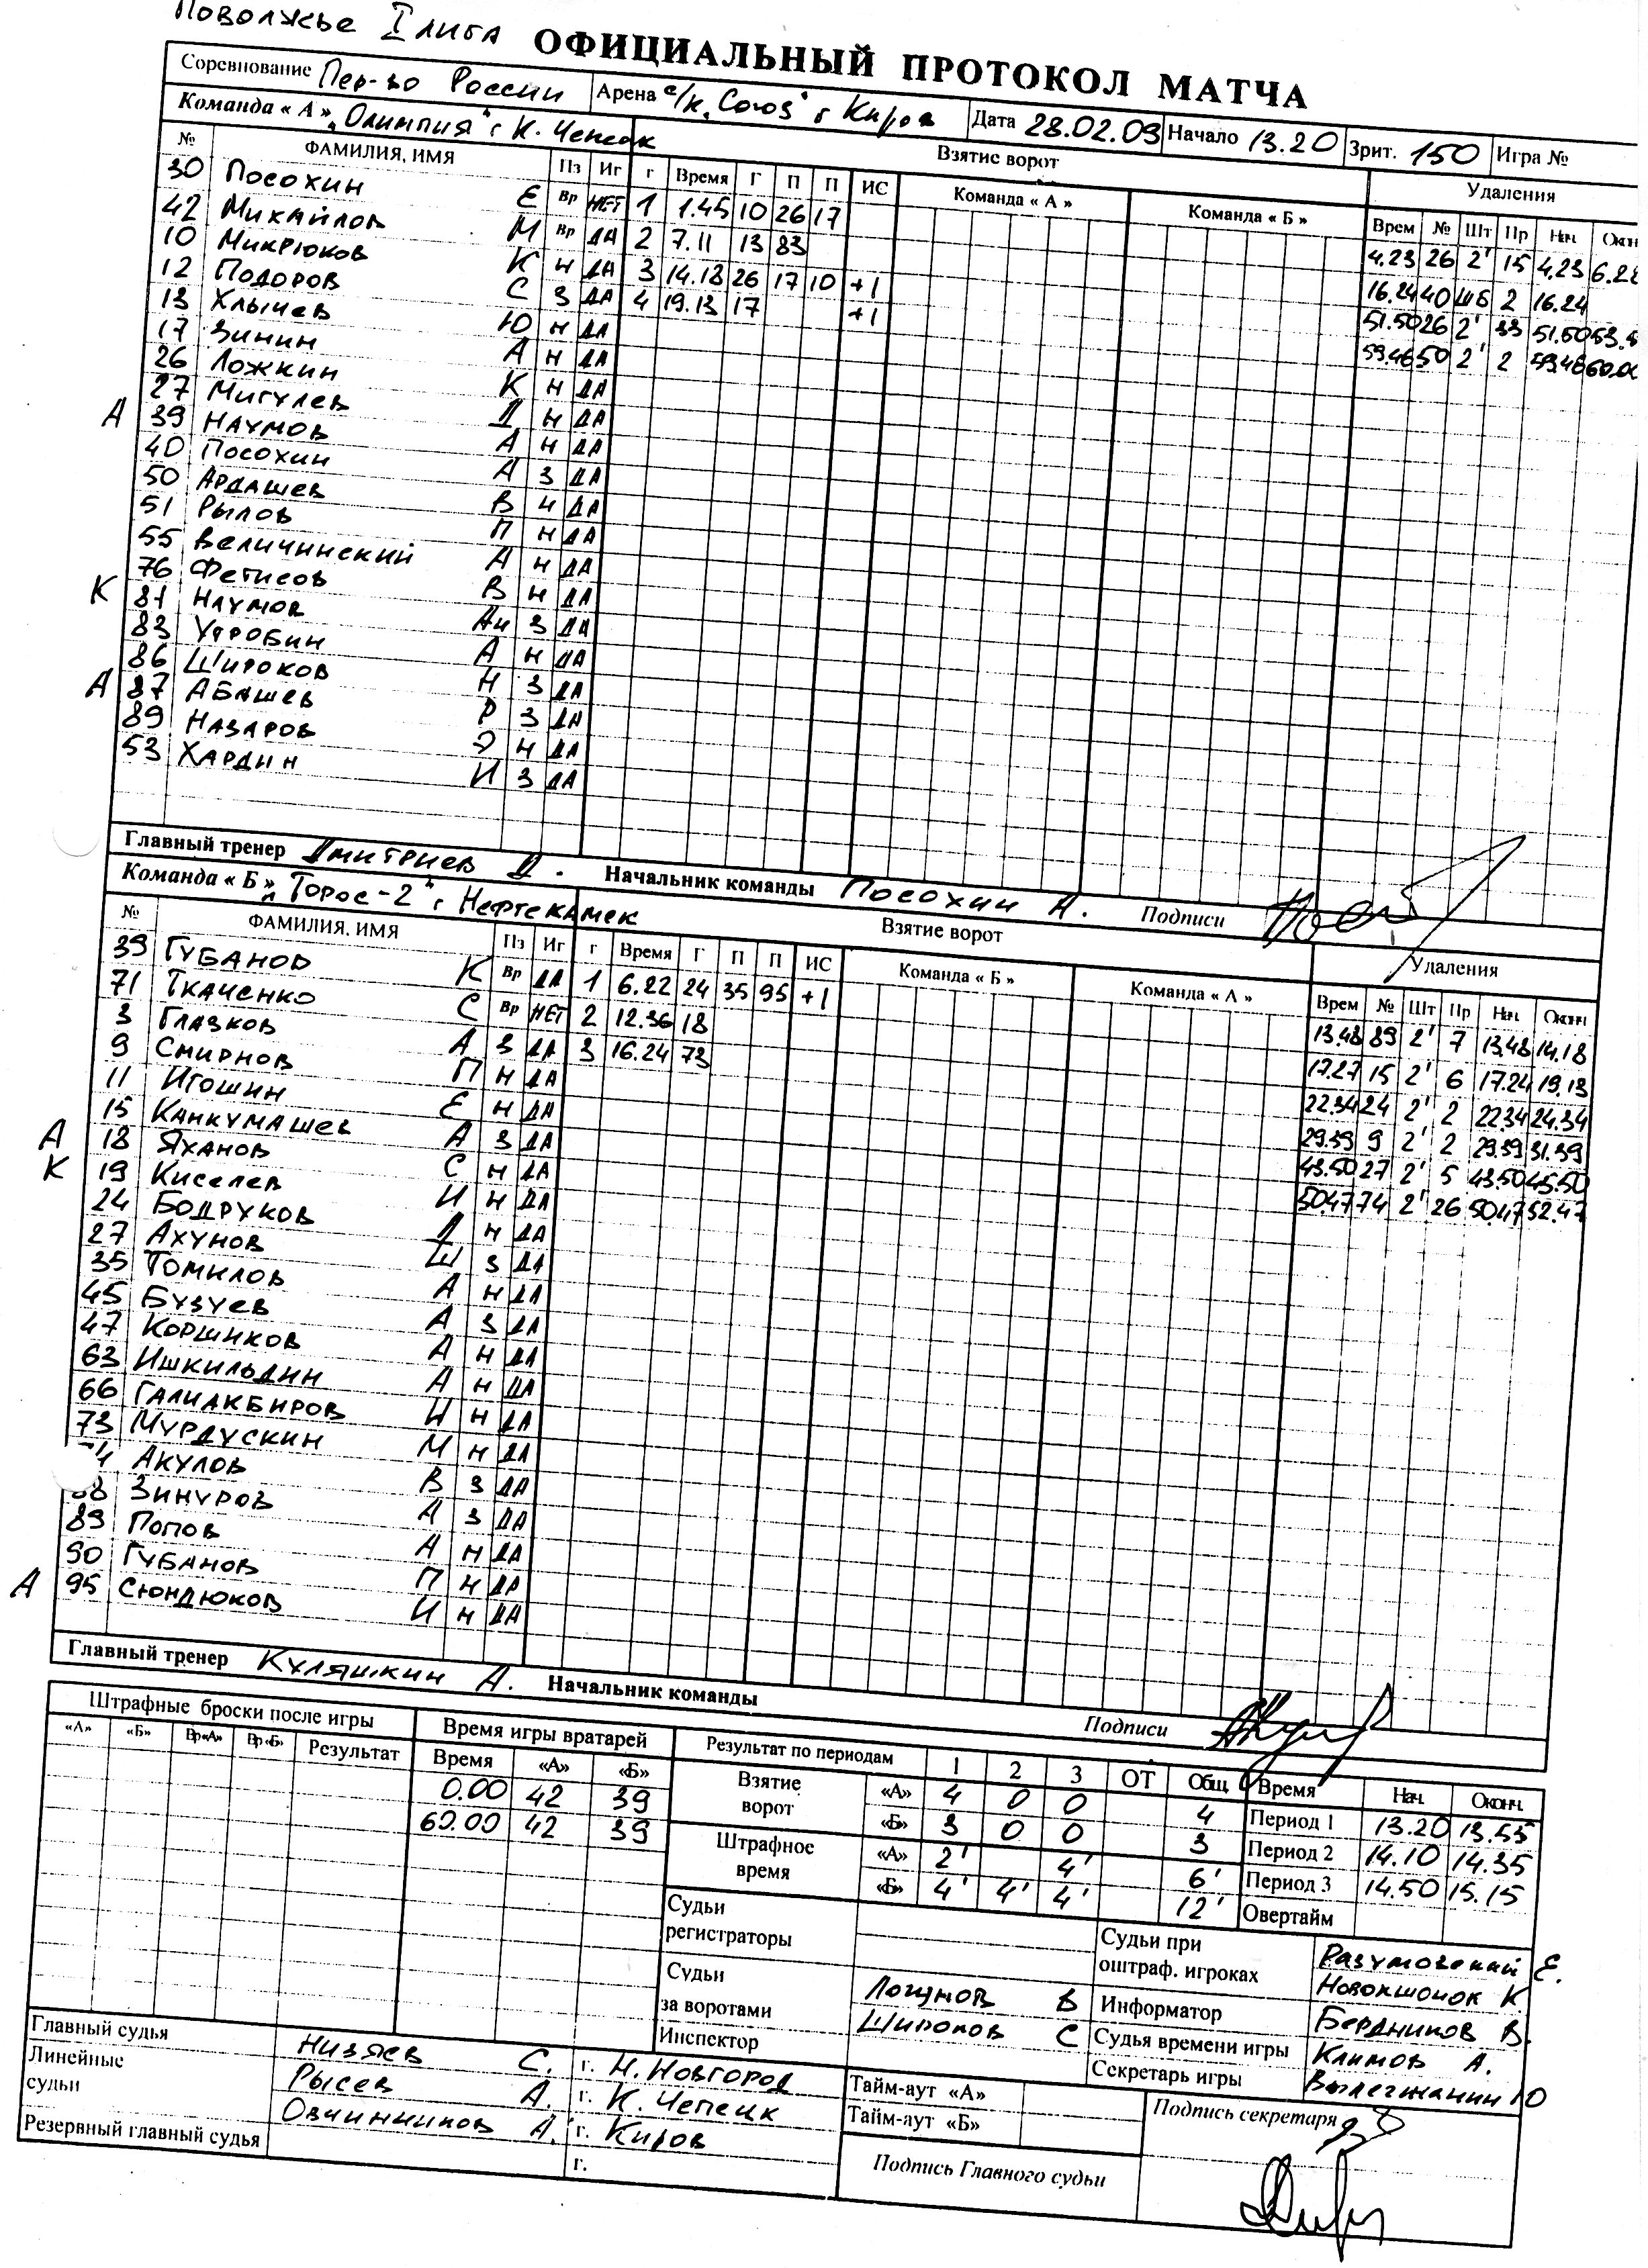 Поволжье I лига ОФИЦИАЛЬНЫЙ ПРОТОКОЛ МАТЧА
Соревнование Пер-во России Арена с/к „Союз" г Киров Дата 28.02.09 Начало 13.20 Зрит. 150 Игра №
Команда « А » „Олимпия" г К. Чепецк Взятие ворот Удаления
№ ФАМИЛИЯ, ИМЯ Пз Иг г Время Г П П ИС Команда « А » Команда « Б » Врем № Шт Пр Нач. Окон
30 Посохин Е Вр НЕТ 1 1.45 10 26 17 4.23 26 2' 15 4.23 6.22
42 Михайлов М Вр ДА 2 7.11 13 83 16.24 40 ШБ 2 16.24
10 Микрюков К Н ДА 3 14.18 26 17 10 +1 51.50 26 2' 33 51.50 53.5
12 Подоров С З ДА 4 19.13 17 +1 59.46 50 2' 2 59.46 60.00
13 Хлычев Ю Н ДА
17 Зинин А Н ДА
26 Ложкин К Н ДА
27 Мигулев Д Н ДА
А 39 Наумов А Н ДА
40 Посохин А З ДА
50 Ардашев В Н ДА
51 Рылов П Н ДА
55 Величинский А Н ДА
76 Фетисов В Н ДА
К 81 Наумов Ан З ДА
83 Утробин А Н ДА
86 Широков Н З ДА
А 87 Абашев Р З ДА
89 Назаров Э Н ДА
53 Хардин И З ДА
Главный тренер Дмитриев Д. Начальник команды Посохин А. Подписи
Команда « Б » „Торос-2" г Нефтекамск Взятие ворот Удаления
№ ФАМИЛИЯ, ИМЯ Пз Иг г Время Г П П ИС Команда « Б » Команда « А » Врем № Шт Пр Нач. Оконч
39 Губанов К Вр ДА 1 6.22 24 35 95 +1 13.48 89 2' 7 13.48 14.18
71 Ткаченко С Вр НЕТ 2 12.36 18 17.27 15 2' 6 17.24 19.13
3 Глазков А З ДА 3 16.24 73 22.34 24 2' 2 22.34 24.34
9 Смирнов П Н ДА 29.39 9 2' 2 29.39 31.39
11 Игошин Е Н ДА 43.50 27 2' 5 43.50 45.50
15 Канкумашев А З ДА 50.47 74 2' 26 50.47 52.47
А 18 Яханов С Н ДА
К 19 Киселев И Н ДА
24 Бодруков Д Н ДА
27 Ахунов Ш З ДА
35 Томилов А Н ДА
45 Бузуев А З ДА
47 Коршиков А Н ДА
63 Ишкильдин А Н ДА
66 Галиакбиров И Н ДА
73 Мурдускин М Н ДА
74 Акулов В З ДА
88 Зинуров А З ДА
89 Попов А Н ДА
90 Губанов П Н ДА
А 95 Сюндюков И Н ДА
Главный тренер Куляшкин А. Начальник команды Подписи
Штрафные броски после игры Время игры вратарей Результат по периодам 1 2 3 ОТ Общ. Время Нач. Оконч.
«А» «Б» Вр«А» Вр«Б» Результат Время «А» «Б»
Взятие ворот «А» 4 0 0 4 Период 1 13.20 13.55
0.00 42 39 «Б» 3 0 0 3 Период 2 14.10 14.35
60.00 42 39 Штрафное время «А» 2' 4' 6' Период 3 14.50 15.15
«Б» 4' 4' 4' 12' Овертайм
Судьи регистраторы Судьи при оштраф. игроках Разумовский Е.
Новокшонок К
Судьи за воротами Логунов В Информатор Бердников В.
Широков С Судья времени игры Климов А.
Инспектор Секретарь игры Вылегжанин Ю
Главный судья Низяев С. г. Н.Новгород Тайм-аут «А» Подпись секретаря
Линейные судьи Рысев А. г. К. Чепецк Тайм-аут «Б»
Овчинников А. г. Киров
Резервный главный судья г. Подпись Главного судьи